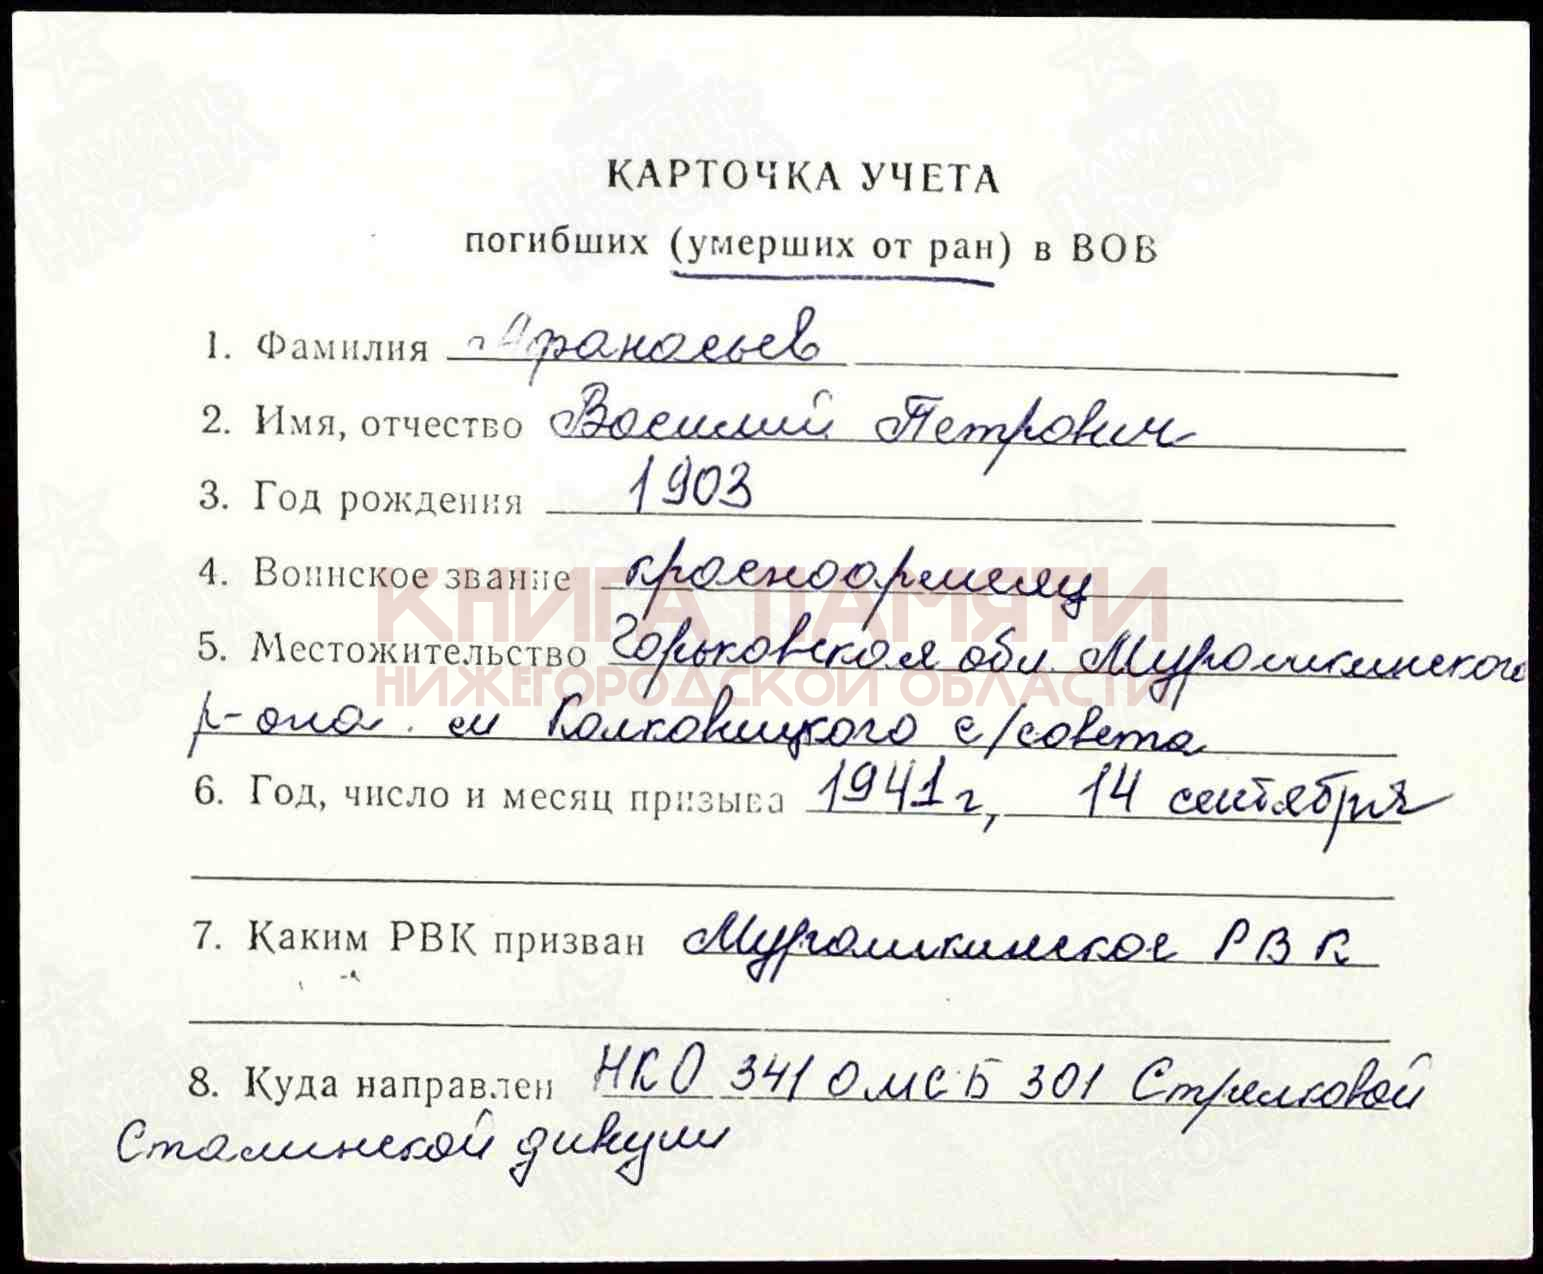 КАРТОЧКА УЧЕТА
погибших (умерших от ран) в ВОВ
1. Фамилия Афанасьев
2. Имя, отчество Василий Петрович
3. Год рождения 1903
4. Воинское звание красноармеец
КНИГА ПАМЯТИ
5. Местожительство Горьковская обл. Мурашкинского
НИЖЕГОРОДСКОЙ ОБЛАСТИ
р-она.
с/совета
6. Год, число и месяц призыва 1941 г, 14 сентября
7. Каким РВК призван Мурашкинское РВК
8. Куда направлен НКО 341 ОМСБ 301 Стрелковой
Сталинской дивизии